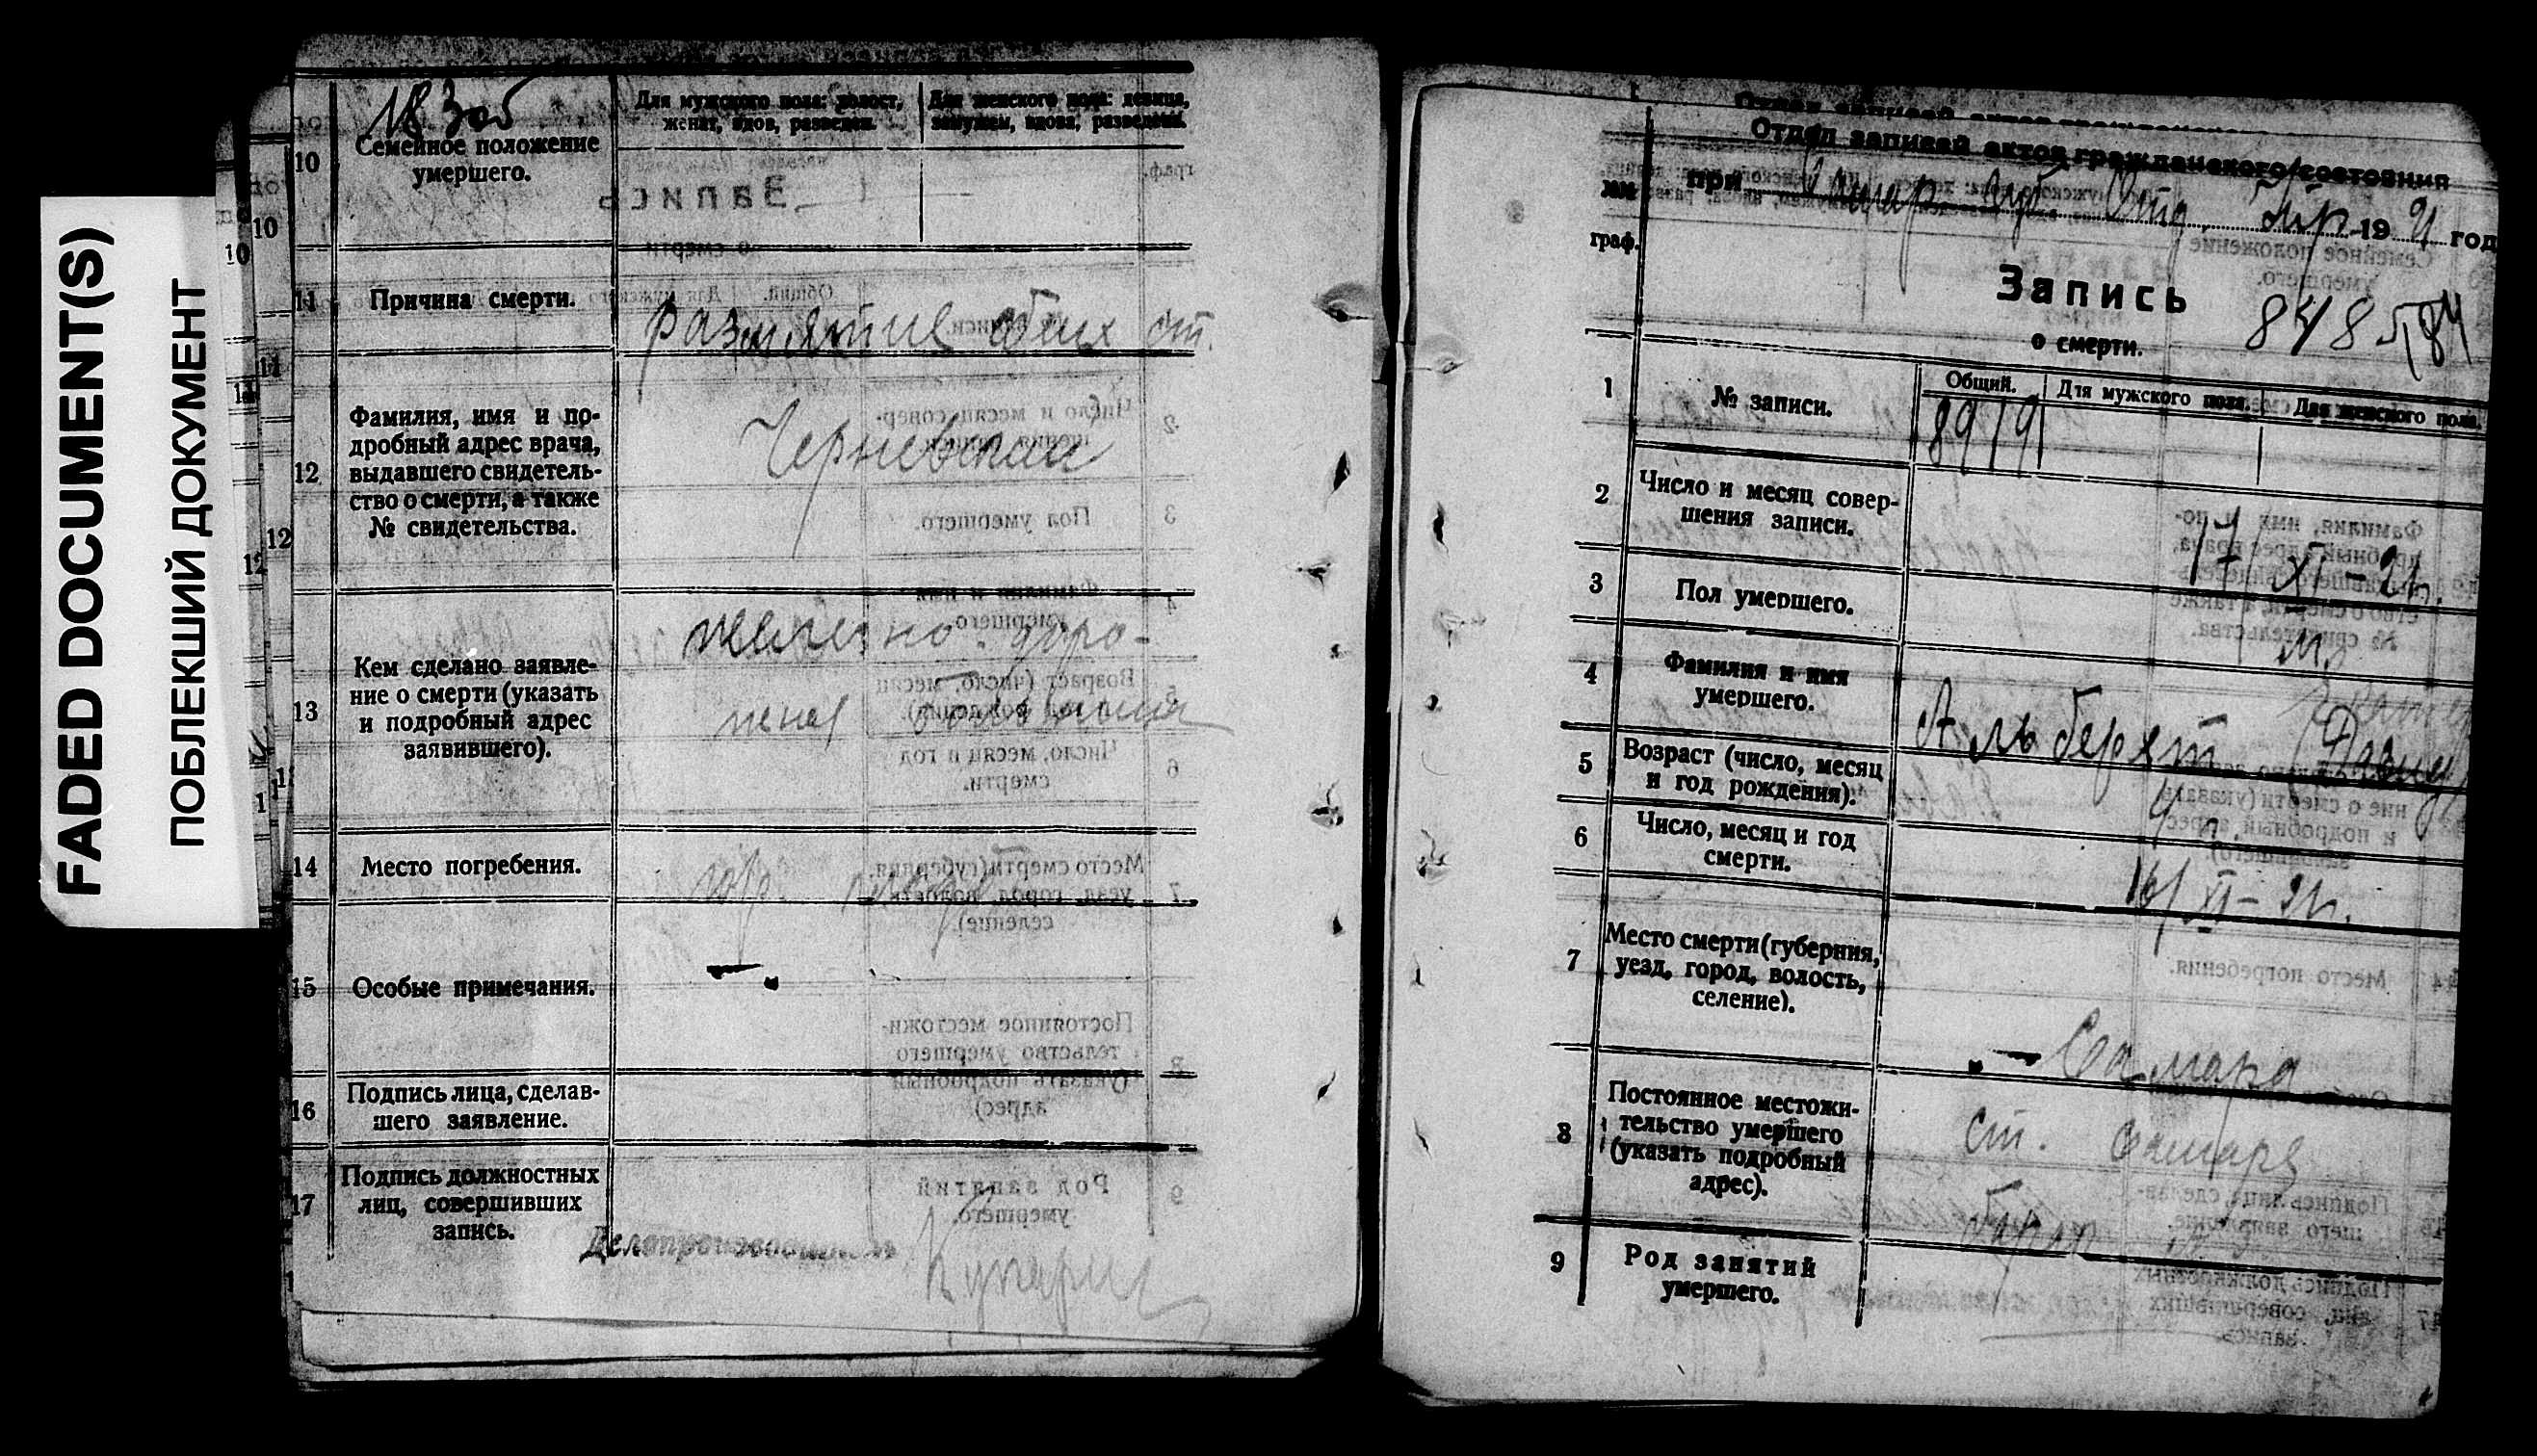 FADED DOCUMENT(S)
ПОБЛЕКШИЙ ДОКУМЕНТ
10
Семейное положение
умершего.
Для мужского пола: холост,
женат, вдов, разведен.
Для женского пола: девица,
замужем, вдова, разведена.
11
Причина смерти.
размятие обеих ст.
12
Фамилия, имя и по-
дробный адрес врача,
выдавшего свидетель-
ство о смерти, а также
№ свидетельства.
13
Кем сделано заявле-
ние о смерти (указать
и подробный адрес
заявившего).
железно-доро-
жная больница
14
Место погребения.
гор.
15
Особые примечания.
16
Подпись лица, сделав-
шего заявление.
17
Подпись должностных
лиц, совершивших
запись.
Делопроизводитель
Отдел записей актов гражданского состояния
при Самар. Губ. Отд. Упр. 1921 год
№№
граф.
Запись
о смерти.
848
1
№ записи.
Общий.
Для мужского пола.
Для женского пола.
8919
2
Число и месяц совер-
шения записи.
17/XI-21г.
3
Пол умершего.
м.
4
Фамилия и имя
умершего.
Альберт
5
Возраст (число, месяц
и год рождения).
9 л.
6
Число, месяц и год
смерти.
16/XI-21г.
7
Место смерти (губерния,
уезд, город, волость,
селение).
Самара
8
Постоянное местожи-
тельство умершего
(указать подробный
адрес).
ст. Самара
9
Род занятий
умершего.